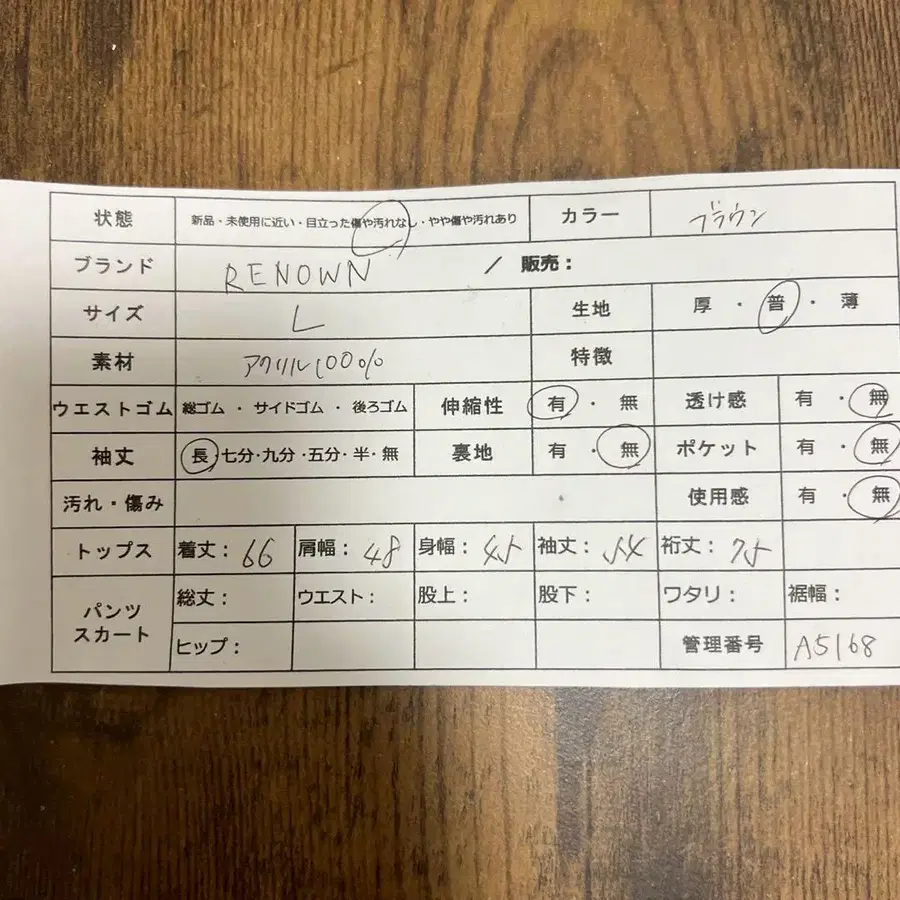 状態 新品・未使用に近い・目立った傷や汚れなし・やや傷や汚れあり カラー ブラウン
ブランド RENOWN / 販売：
サイズ L 生地 厚・普・薄
素材 アクリル100% 特徴
ウエストゴム 総ゴム・サイドゴム・後ろゴム 伸縮性 有・無 透け感 有・無
袖丈 長・七分・九分・五分・半・無 裏地 有・無 ポケット 有・無
汚れ・傷み 使用感 有・無
トップス 着丈：66 肩幅：48 身幅：45 袖丈：54 裄丈：75
パンツ スカート 総丈： ウエスト： 股上： 股下： ワタリ： 裾幅：
ヒップ： 管理番号 A5168